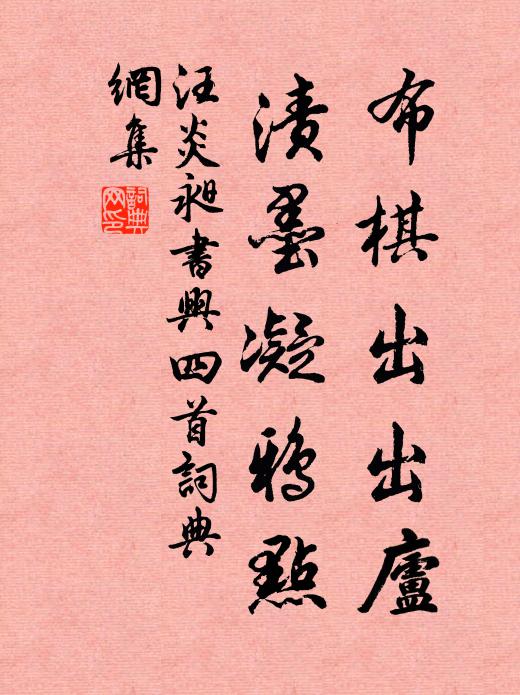 布棋出出廬
漬墨凝鴉點
汪炎昶書興四首詞典
網集
詞典網印